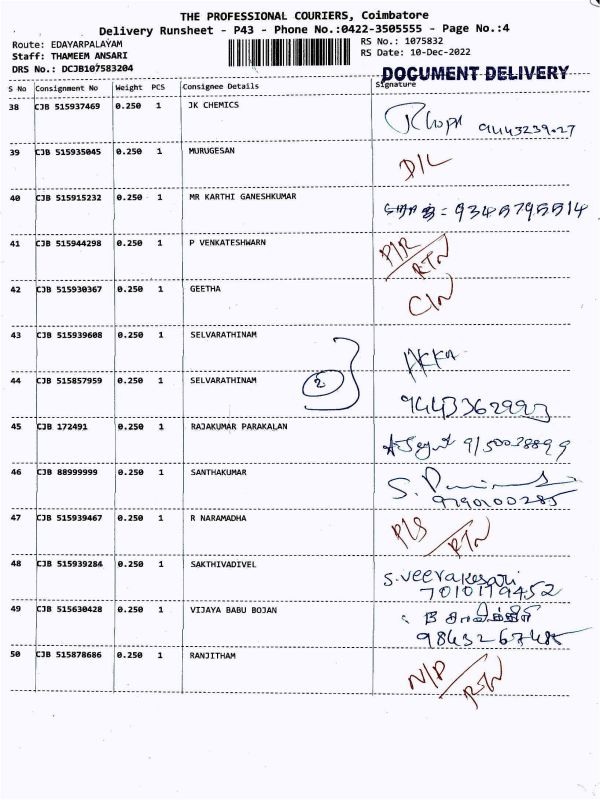 THE PROFESSIONAL COURIERS, Coimbatore
Delivery Runsheet - P43 - Phone No.:0422-3505555 - Page No.:4
Route: EDAYARPALAYAM
RS No.: 1075832
Staff: THAMEEM ANSARI
RS Date: 10-Dec-2022
DRS No.: DCJB107583204
DOCUMENT DELIVERY
S No Consignment No Weight PCS Consignee Details Signature
38 CJB 515937469 0.250 1 JK CHEMICS
39 CJB 515935045 0.250 1 MURUGESAN D/L
40 CJB 515915232 0.250 1 MR KARTHI GANESHKUMAR = 9345795514
41 CJB 515944298 0.250 1 P VENKATESHWARN P/R RTN
42 CJB 515930367 0.250 1 GEETHA C/N
43 CJB 515939608 0.250 1 SELVARATHINAM
44 CJB 515857959 0.250 1 SELVARATHINAM 2
45 CJB 172491 0.250 1 RAJAKUMAR PARAKALAN
46 CJB 88999999 0.250 1 SANTHAKUMAR
9790100285
47 CJB 515939467 0.250 1 R NARAMADHA P/S RTN
48 CJB 515939284 0.250 1 SAKTHIVADIVEL S.veerakesari
7010119452
49 CJB 515630428 0.250 1 VIJAYA BABU BOJAN
50 CJB 515878686 0.250 1 RANJITHAM N/P RTN